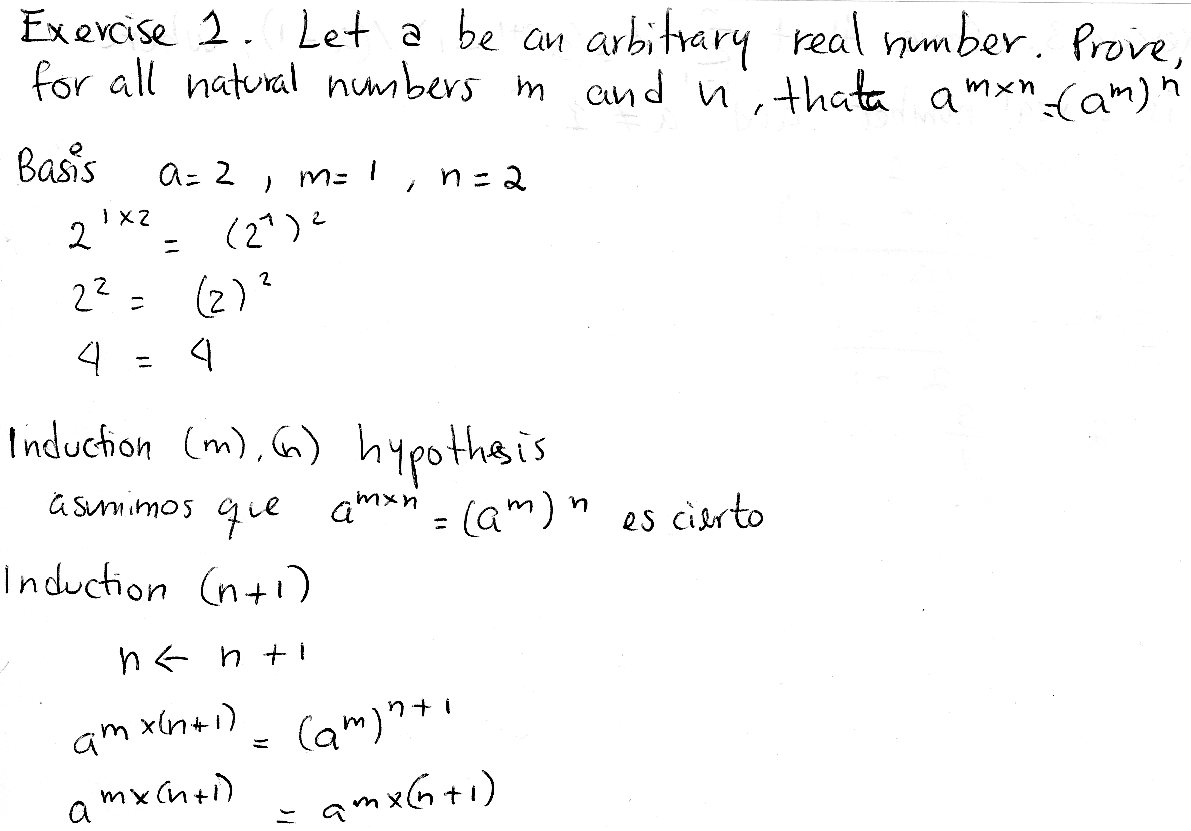 Exercise 1. Let a be an arbitrary real number. Prove,
for all natural numbers m and n, that a^{m×n} = (a^m)^n
Basis a = 2, m = 1, n = 2
2^{1×2} = (2^1)^2
2^2 = (2)^2
4 = 4
Induction (m), (n) hypothesis
asumimos que a^{m×n} = (a^m)^n es cierto
Induction (n+1)
n ← n + 1
a^{m×(n+1)} = (a^m)^{n+1}
a^{m×(n+1)} = a^{m×(n+1)}